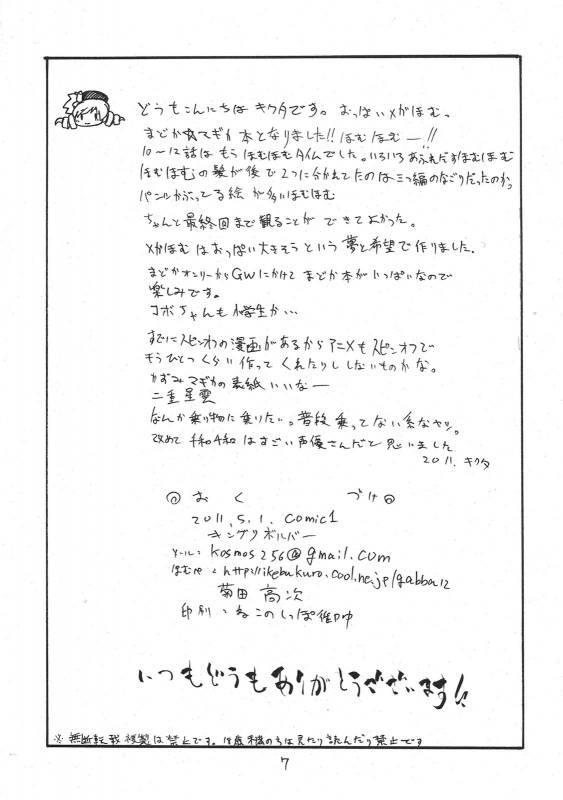 どうもこんにちは キクタです。 おっぱいメがほむっ
まどか マギカ 本となりました!! ほむほむー!!
10〜12話は もう ほむほむタイムでした。いろいろあふれだすほむほむ
ほむほむの髪が後で2つに分かれてたのは三つ編のなごりだったのかっ
パンツかぶってる絵 が多いほむほむ
ちゃんと最終回まで観ることが できてよかった。
メがほむ はおっぱい大きそうという 夢と希望で作りました。
まどかオンリーからGWにかけて まどか本が いっぱいなので
楽しみです。
コボちゃんも 小学生か…
すでにスピンオフの漫画があるから アニメもスピンオフで
もうひとつくらい作って くれたりし しないものかな。
かずみマギカの表紙いいなー
二重星雲
なんか乗り物に乗りたいっ。普段 乗ってない系なヤツ。
改めて 千和千和 はすごい声優さんだと 思いました
2011. キクタ
◎ お く づけ ◎
2011.5.1. comic1
キングリボルバー
メール: kosmos256@gmail.com
ほむぺ : http://ikebukuro.cool.ne.jp/gabba12
菊田 高次
印刷 : ねこのしっぽ 御中
いつもどうもありがとうございます!!
※ 無断転載 複製は禁止です。18歳 のちは見たり読んだり禁止です
7